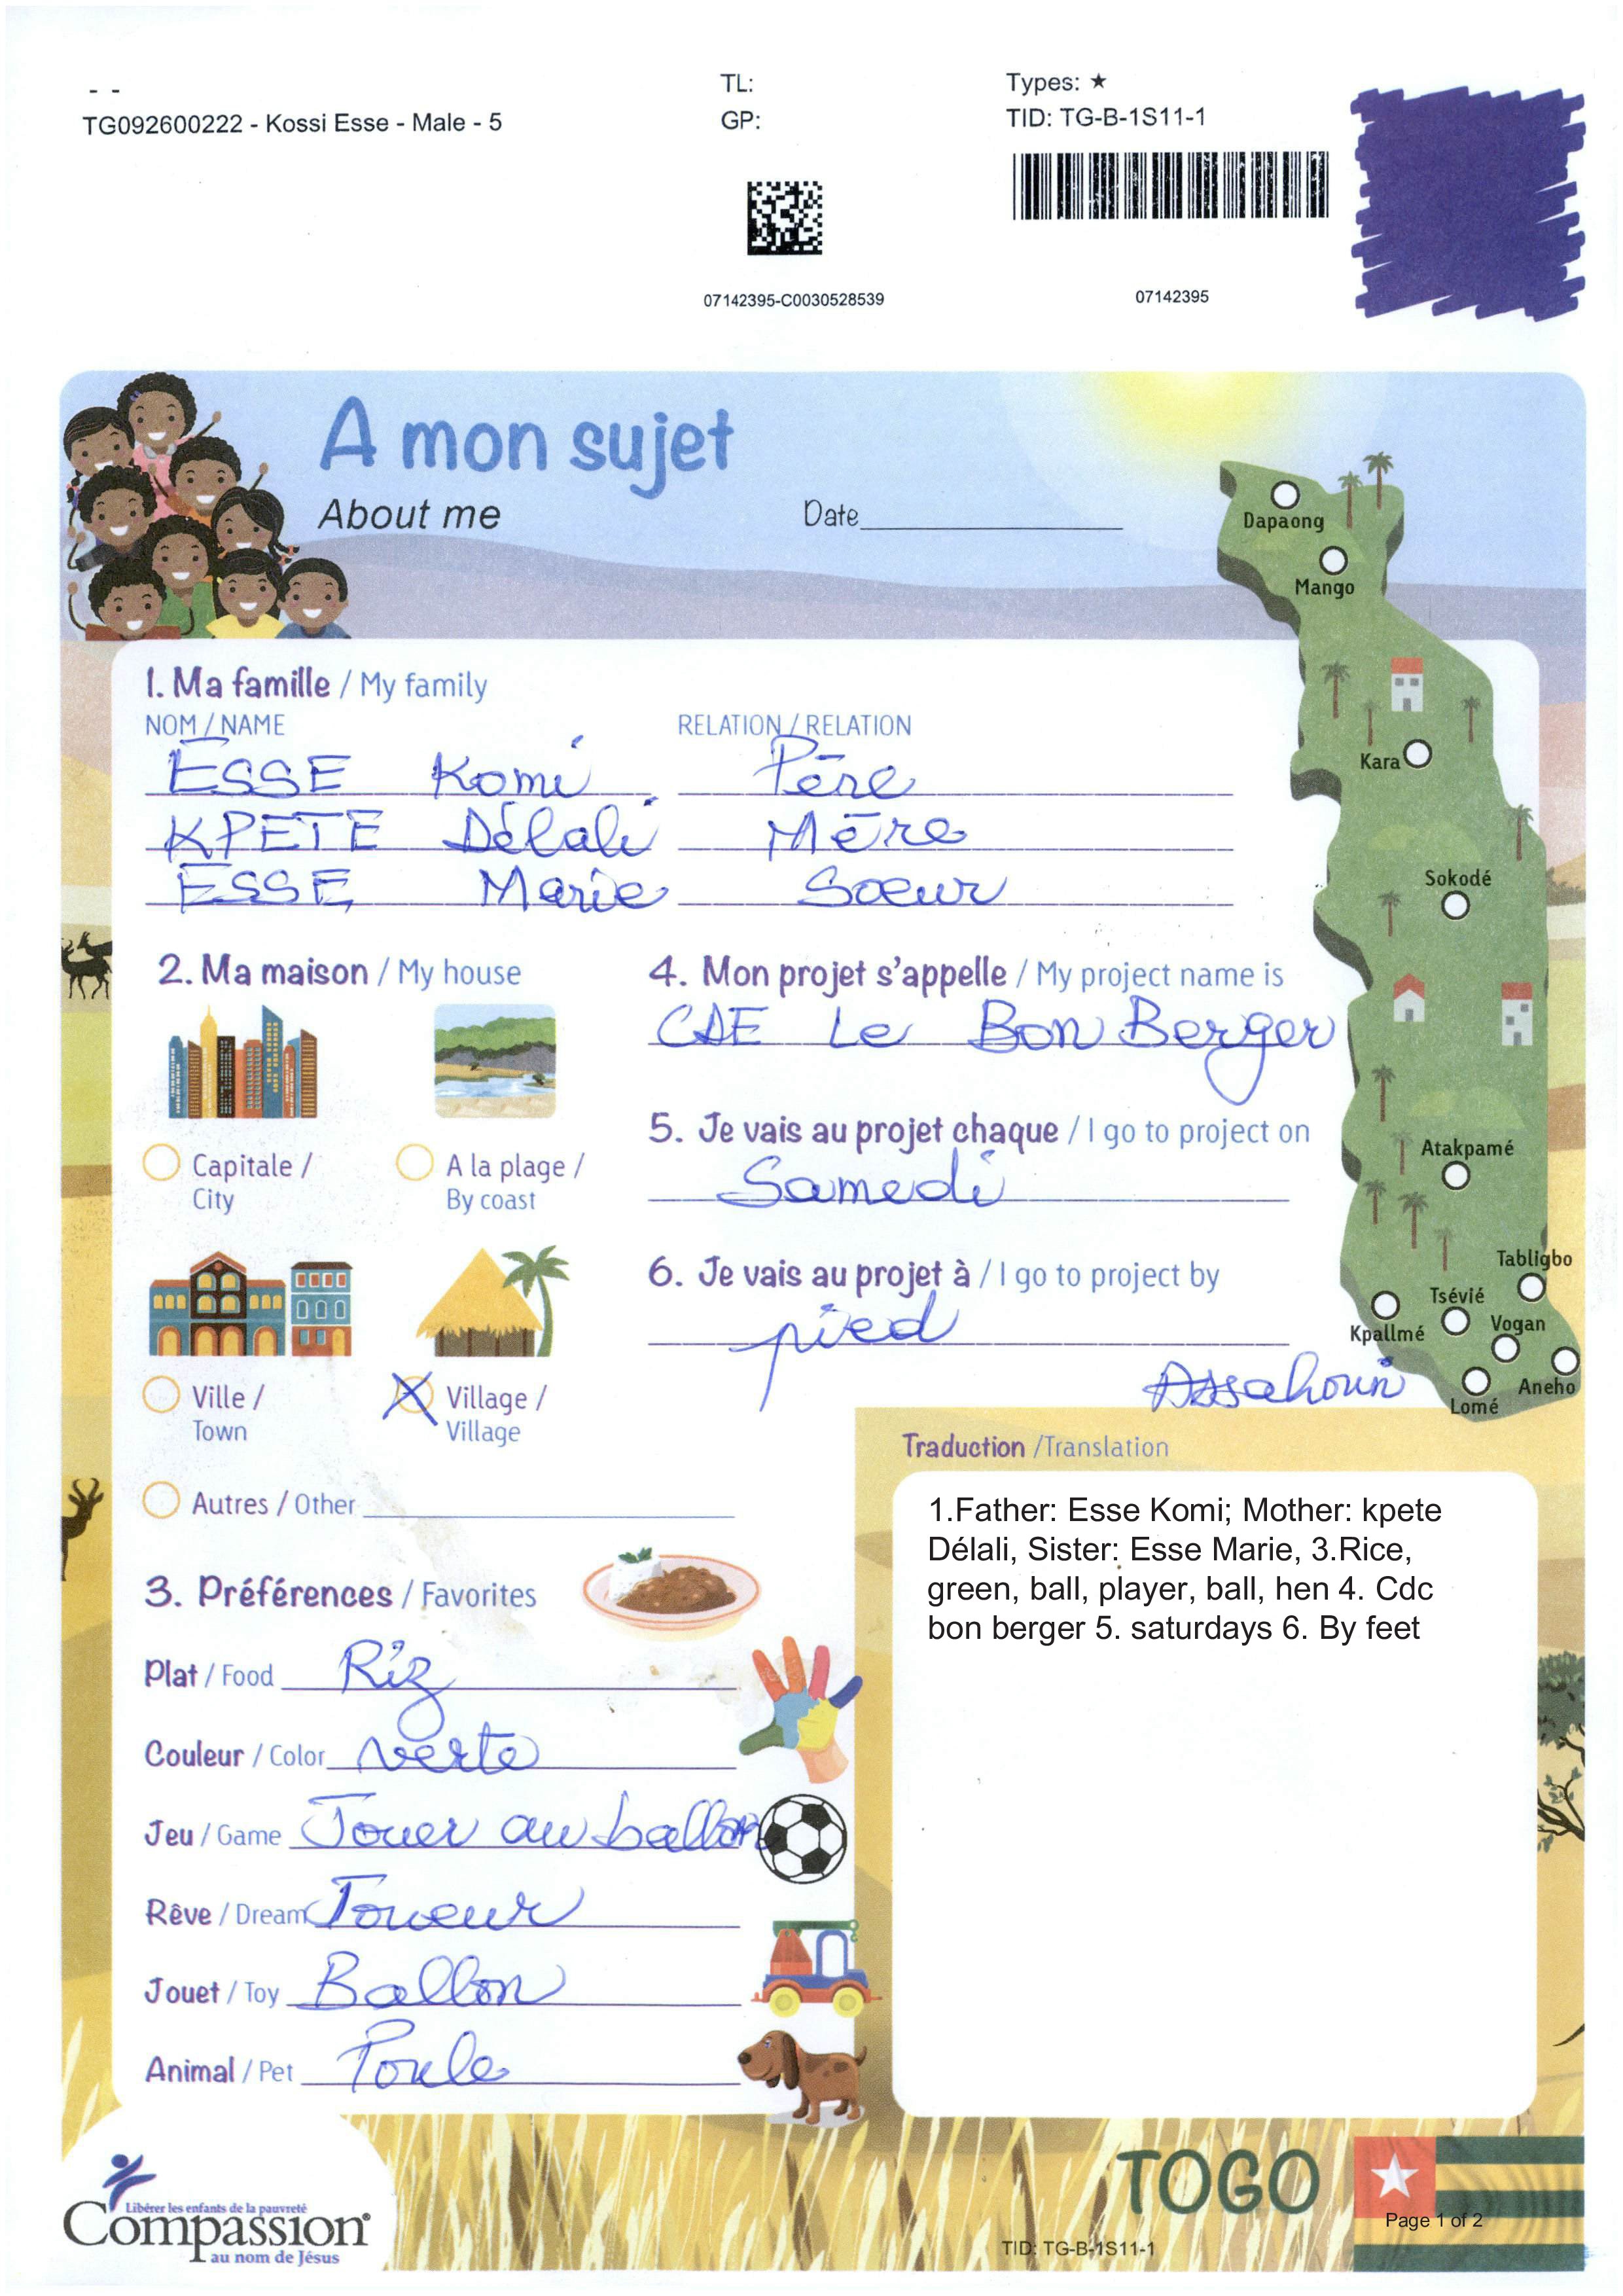 - -
TG092600222 - Kossi Esse - Male - 5
TL:
GP:
Types: ★
TID: TG-B-1S11-1
07142395-C0030528539
07142395
A mon sujet
About me
Date
Dapaong
Mango
Kara
Sokodé
Atakpamé
Tabligbo
Tsévié
Kpallmé
Vogan
Aneho
Lomé
1. Ma famille / My family
NOM / NAME RELATION / RELATION
ESSE Komi Père
KPETE Délali Mère
ESSE Marie Soeur
2. Ma maison / My house
Capitale /
City
A la plage /
By coast
Ville /
Town
Village /
Village
Autres / Other
3. Préférences / Favorites
Plat / Food Riz
Couleur / Color verte
Jeu / Game Jouer au ballon
Rêve / Dream Joueur
Jouet / Toy Ballon
Animal / Pet Poule
4. Mon projet s'appelle / My project name is
CDE Le Bon Berger
5. Je vais au projet chaque / I go to project on
Samedi
6. Je vais au projet à / I go to project by
pied
Assahoun
Traduction /Translation
1.Father: Esse Komi; Mother: kpete
Délali, Sister: Esse Marie, 3.Rice,
green, ball, player, ball, hen 4. Cdc
bon berger 5. saturdays 6. By feet
Libérer les enfants de la pauvreté
Compassion®
au nom de Jésus
TOGO
Page 1 of 2
TID: TG-B-1S11-1